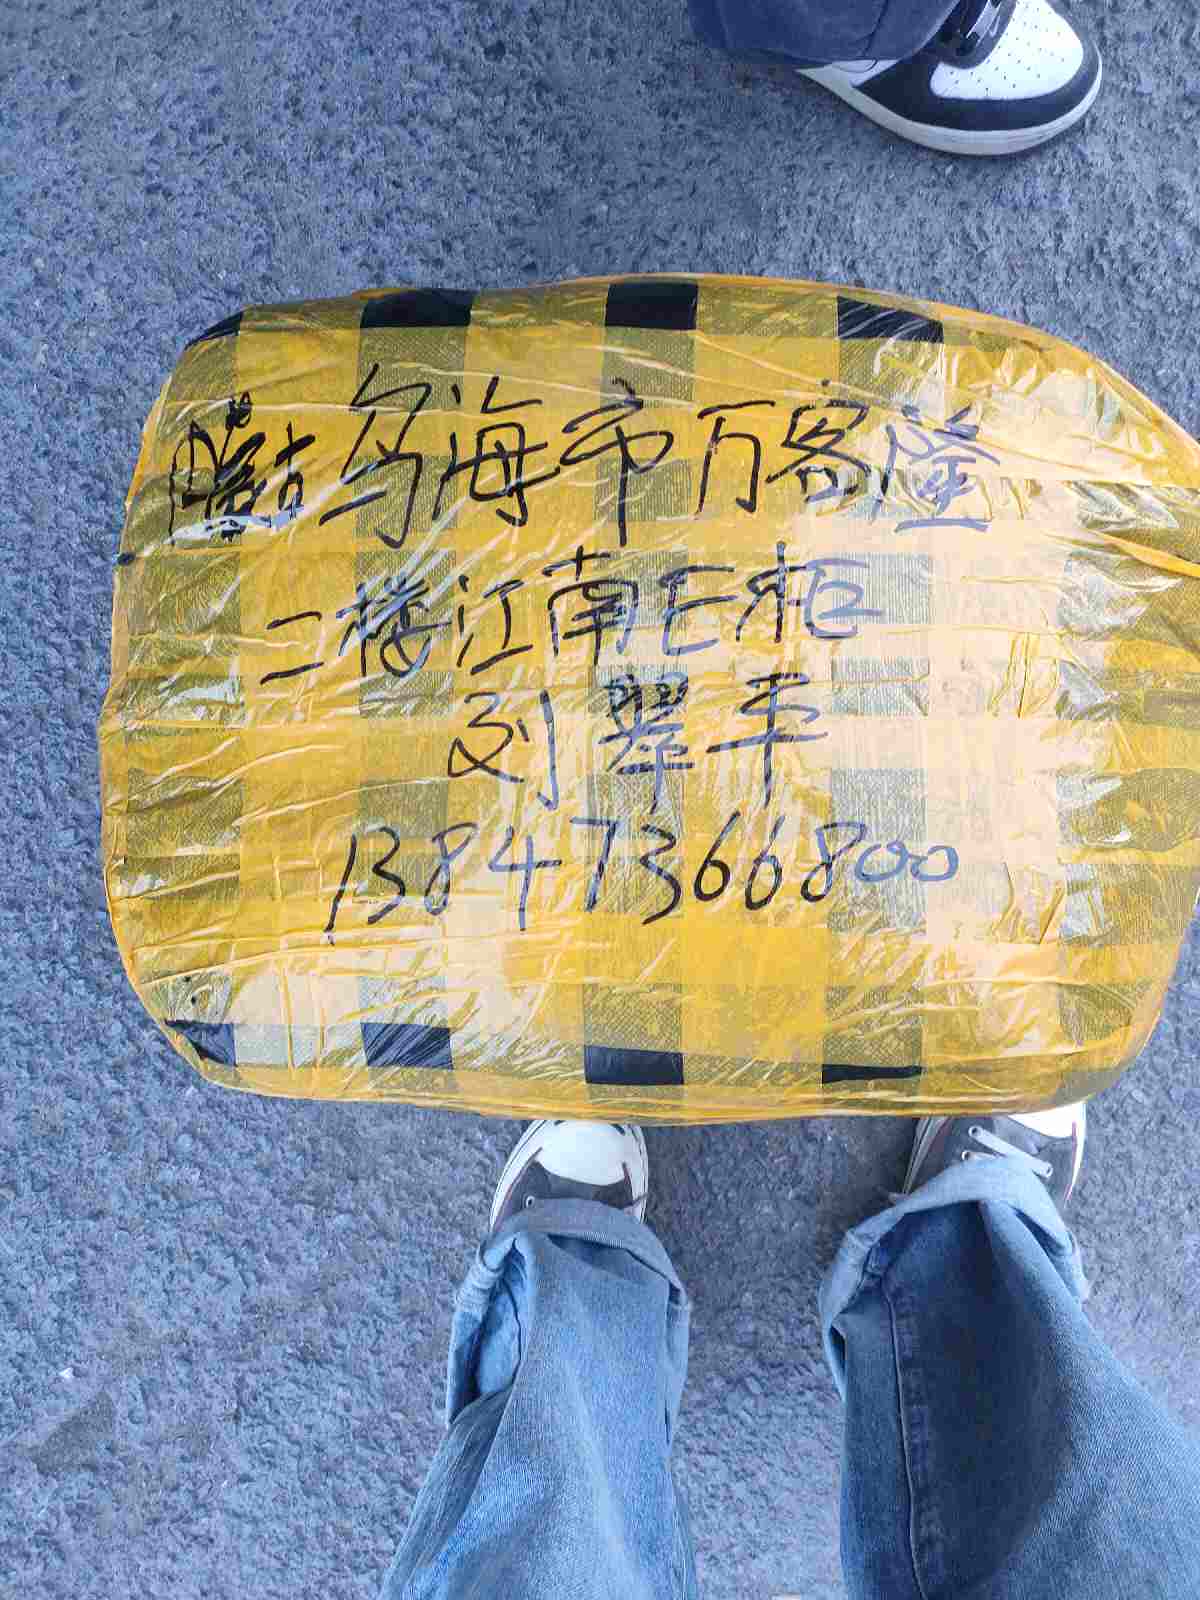 乌海市万客隆
二楼江南E柜
刘翠平
13847366800